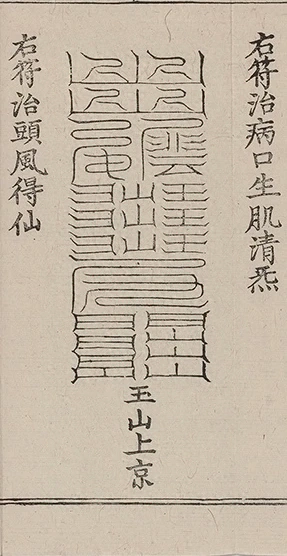 右符治病口生肌清炁
玉山上京
右符治頭風得仙